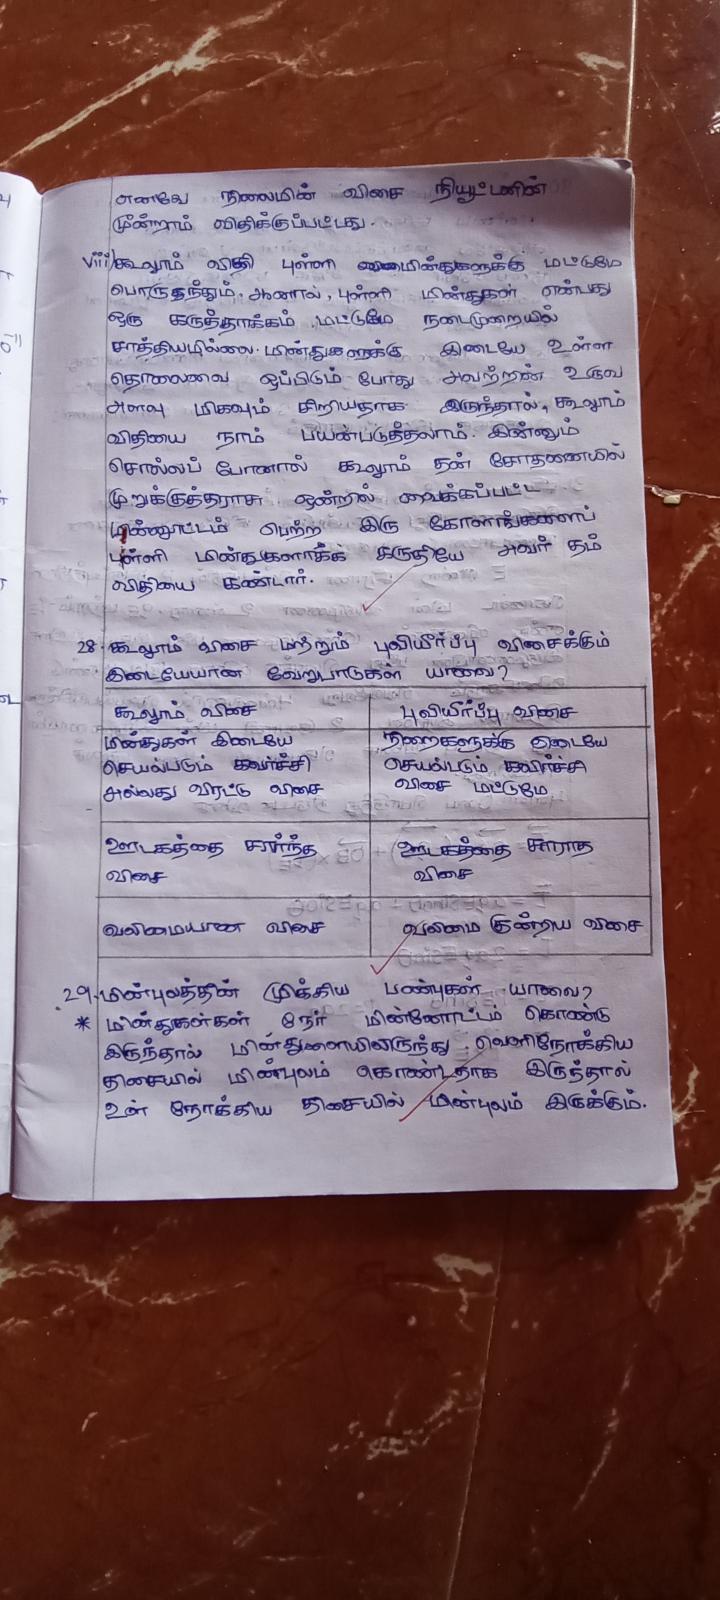 எனவே நிலைமின் விசை நியூட்டனின்
மூன்றாம் விதிக்குப்பட்டது.
viii) கூலூம் விதி புள்ளி மின்துகளுக்கு மட்டுமே
பொருந்தும். ஆனால், புள்ளி மின்துகள் என்பது
ஒரு கருத்தாக்கம் மட்டுமே நடைமுறையில்
சாத்தியமில்லை. மின்துகளுக்கு இடையே உள்ள
தொலைவை ஒப்பிடும் போது அவற்றின் உருவ
அளவு மிகவும் சிறியதாக இருந்தால், கூலூம்
விதியை நாம் பயன்படுத்தலாம். இன்னும்
சொல்லப் போனால் கூலூம் தன் சோதனையில்
முறுக்குத்தராசு ஒன்றில் வைக்கப்பட்ட
மின்னூட்டம் பெற்ற இரு கோளங்களைப்
புள்ளி மின்துகளாக்க கருதியே அவர் தம்
விதியை கண்டார்.
28. கூலூம் விசை மற்றும் புவியீர்ப்பு விசைக்கும்
இடையேயான வேறுபாடுகள் யாவை?
கூலூம் விசை புவியீர்ப்பு விசை
மின்துகள் இடையே நிறைகளுக்கு இடையே
செயல்படும் கவர்ச்சி செயல்படும் கவர்ச்சி
அல்லது விரட்டு விசை விசை மட்டுமே
ஊடகத்தை சார்ந்த ஊடகத்தை சாராத
விசை விசை
வலிமையான விசை வலிமை குன்றிய விசை
29. மின்புலத்தின் முக்கிய பண்புகள் யாவை?
* மின்துகள்கள் நேர் மின்னோட்டம் கொண்டு
இருந்தால் மின்துளையிலிருந்து வெளிநோக்கிய
திசையில் மின்புலம் கொண்டதாக இருந்தால்
உள் நோக்கிய திசையில் மின்புலம் இருக்கும்.